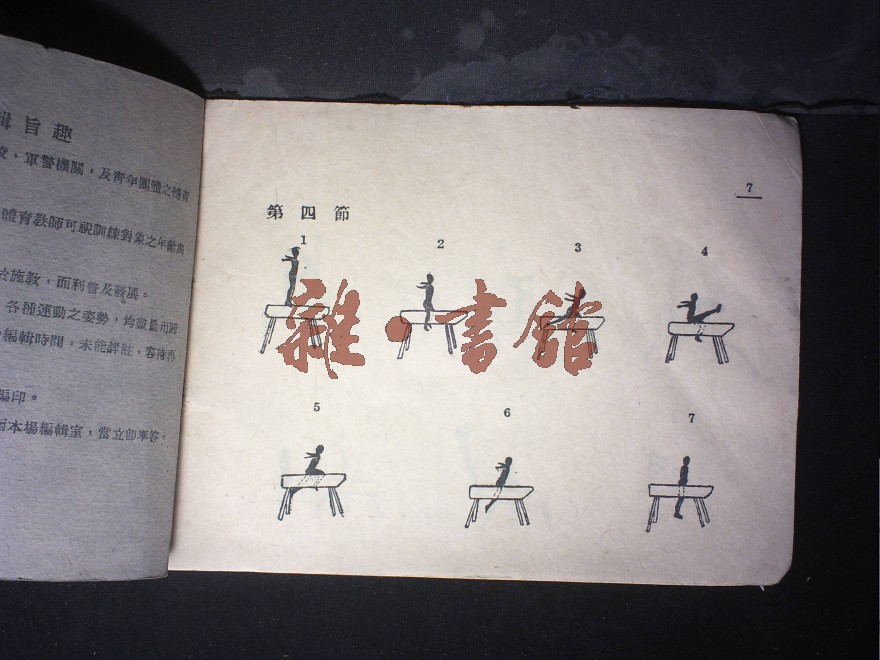 輯旨趣
，軍警機關，及青年團體之體育
體育教師可視訓練對象之年齡與
於施教，而利普及發展。
各種運動之姿勢，均盡量用圖
編輯時間，未能詳註，容待再
編印。
本場編輯室，當立卽奉答，
7
第四節
1
2
3
4
雜·書館
5
6
7